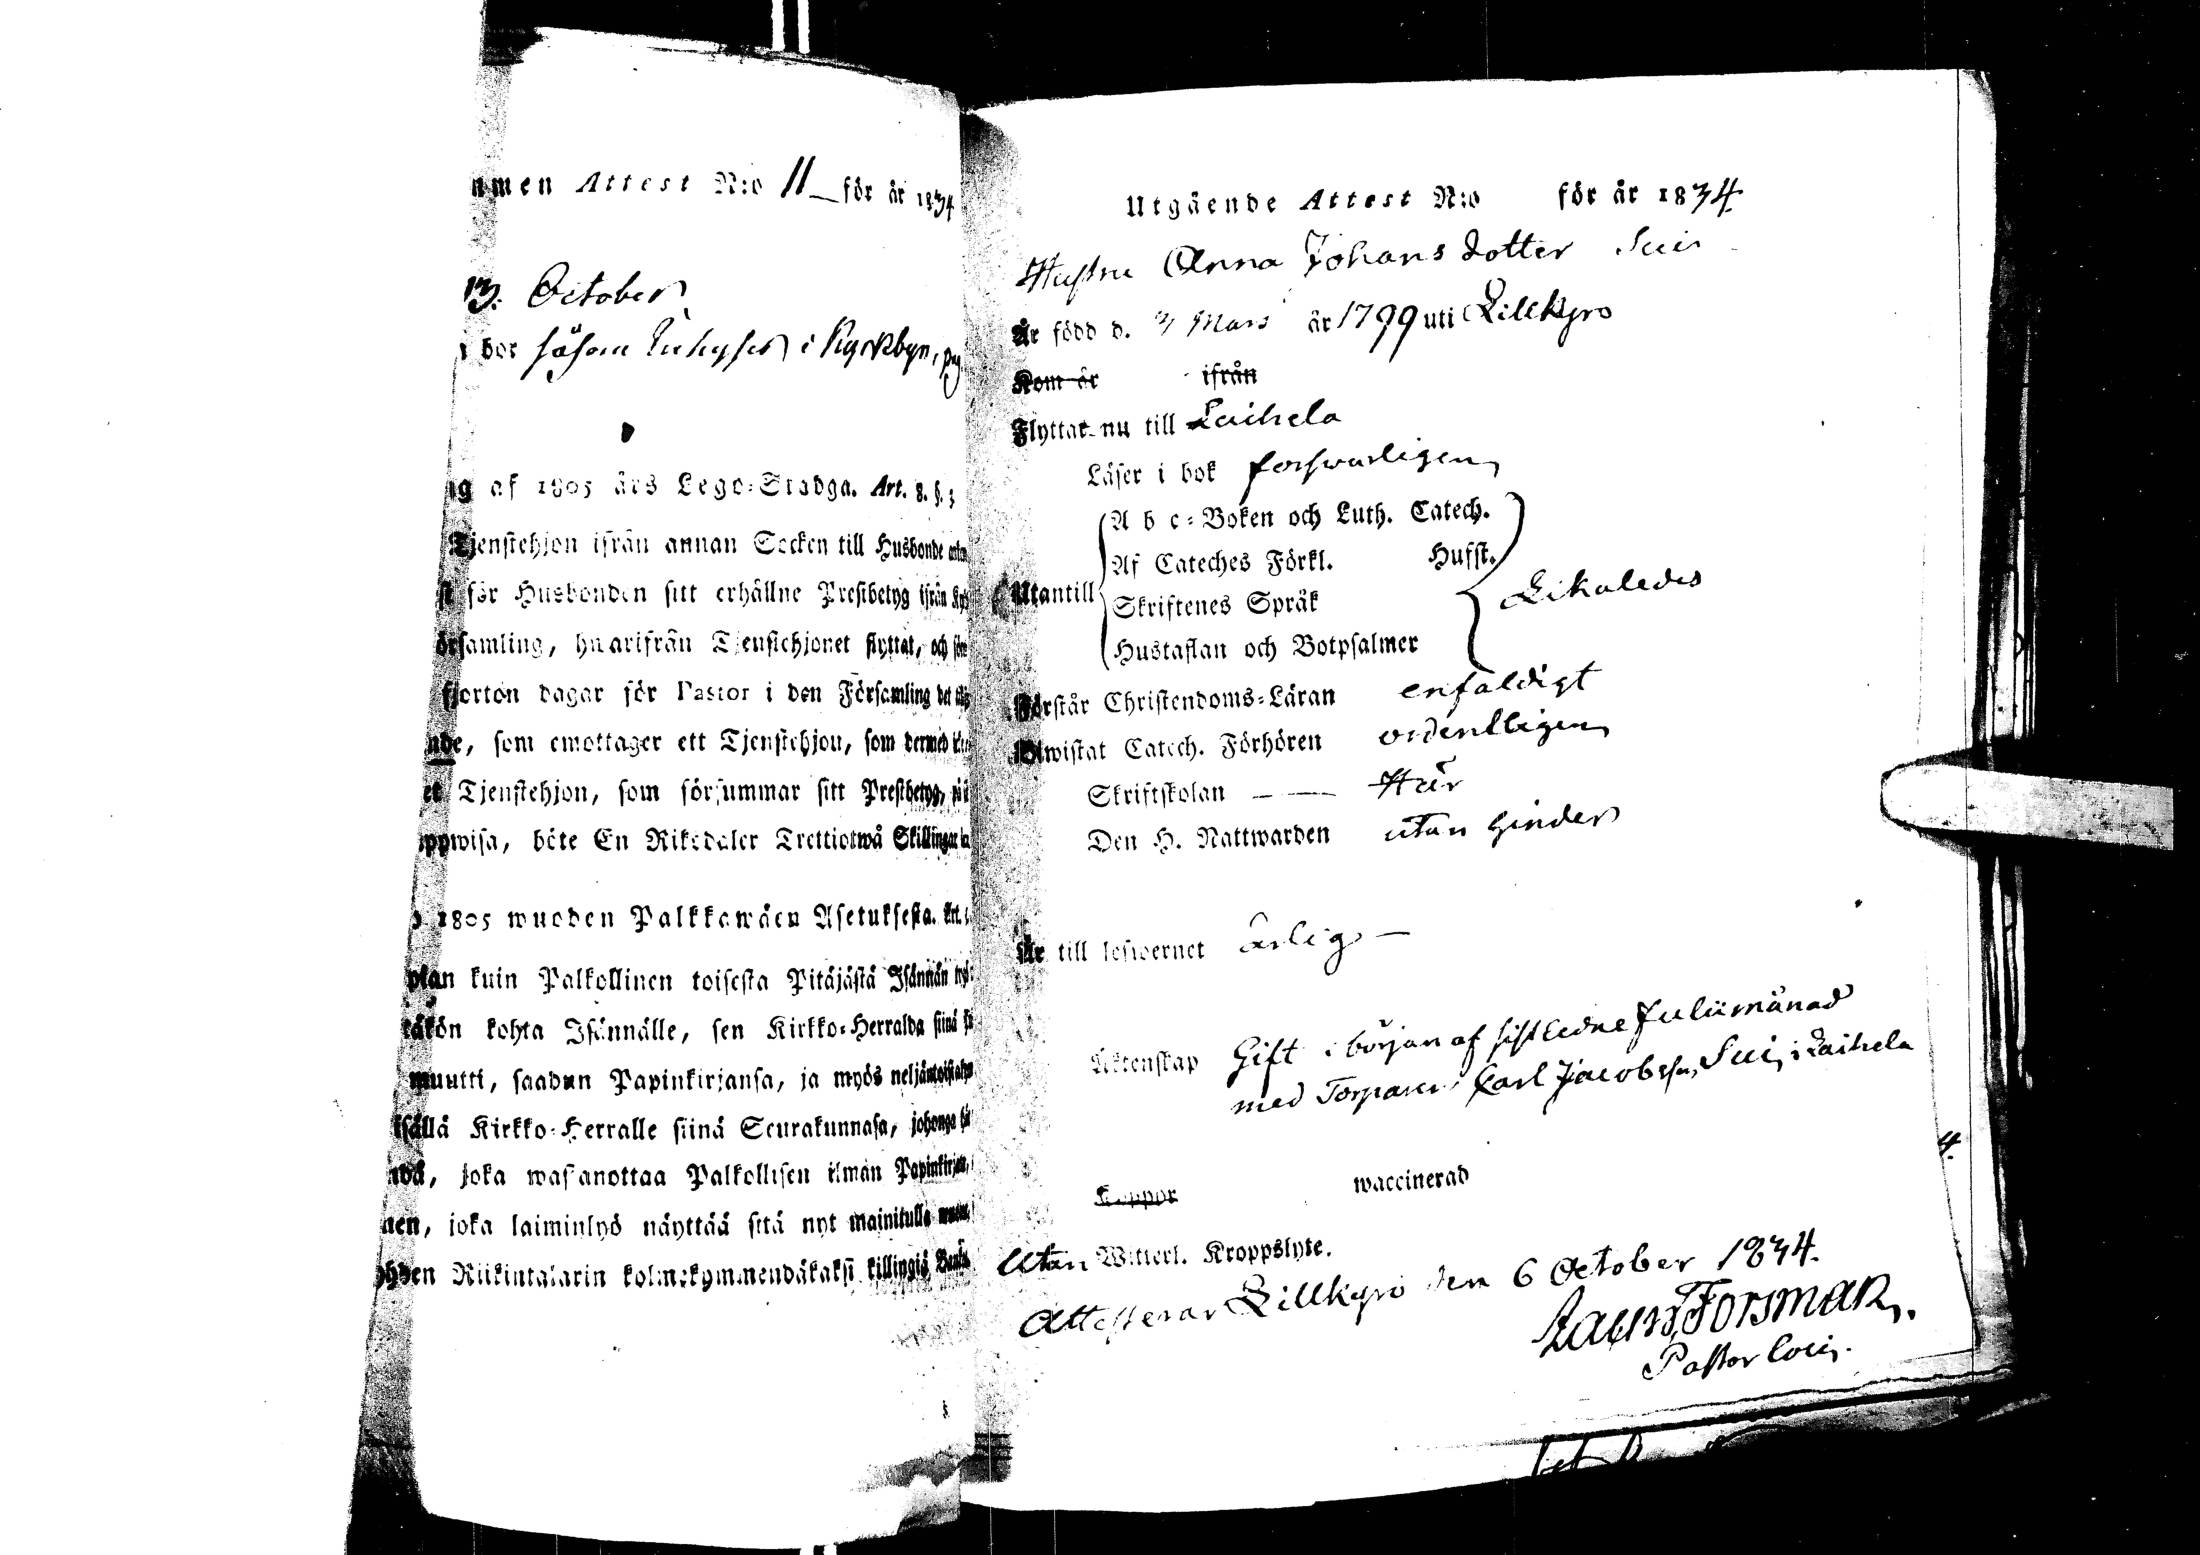 nmen Attest N:o 11 för år 1834
13. October
i bor såsom i Kyrkbyn,
ng af 1805 års Lego-Stadga. Art. 8. §. 3
Tjenstehjon ifrån annan Socken till Husbonde
st för Husbonden sitt erhållne Prestbetyg ifrån
örsamling, hwarifrån Tjenstehjonet flyttat, och
fjorton dagar för Pastor i den Församling det
nde, som emottager ett Tjenstehjon, som dermed
et Tjenstehjon, som försummar sitt Prestbetyg,
uppwisa, böte En Riksdaler Trettiotwå Skillingar
1805 wuoden Palkkawäen Asetuksesta. Art.
plän kuin Palkollinen toisesta Pitäjästä Isännän
täkön kohta Isännälle, sen Kirkko-Herralda siinä
muutti, saadun Papinkirjansa, ja myös
isällä Kirkko-Herralle siinä Seurakunnasa, johonga
ndä, joka wastanottaa Palkollisen ilman Papinkirjan,
nen, joka laiminlyö näyttää sitä nyt mainitulla
yhden Riikintalarin kolmekymmendäkaksi killingiä Banko
Utgående Attest N:o för år 1834.
Hustru Anna Johans dotter Sui
Är född d. 3 Mars år 1799 uti Lillkyro
Kom år ifrån
Flyttar nu till Laihela
Läser i bok forswarligen
A b c-Boken och Luth. Catech.
Af Cateches Förkl. Husst.
Utantill Likaledes
Skriftenes Språk
Hustaflan och Botpsalmer
Förstår Christendoms-Läran enfaldigt
Biwistat Catech. Förhören ordentligen
Skriftskolan — — Här
Den H. Nattwarden utan hinder
Är till lefwernet ärlig —
Äktenskap Gift i början af sistledne Julii månad
med Torparen Carl Jacobsson Sui, i Laihela
4.
Koppor waccinerad
Utan Witterl. Kroppslyte.
Attesterar Lillkyro den 6 October 1834.
Laur. Forsman,
Pastor loci.